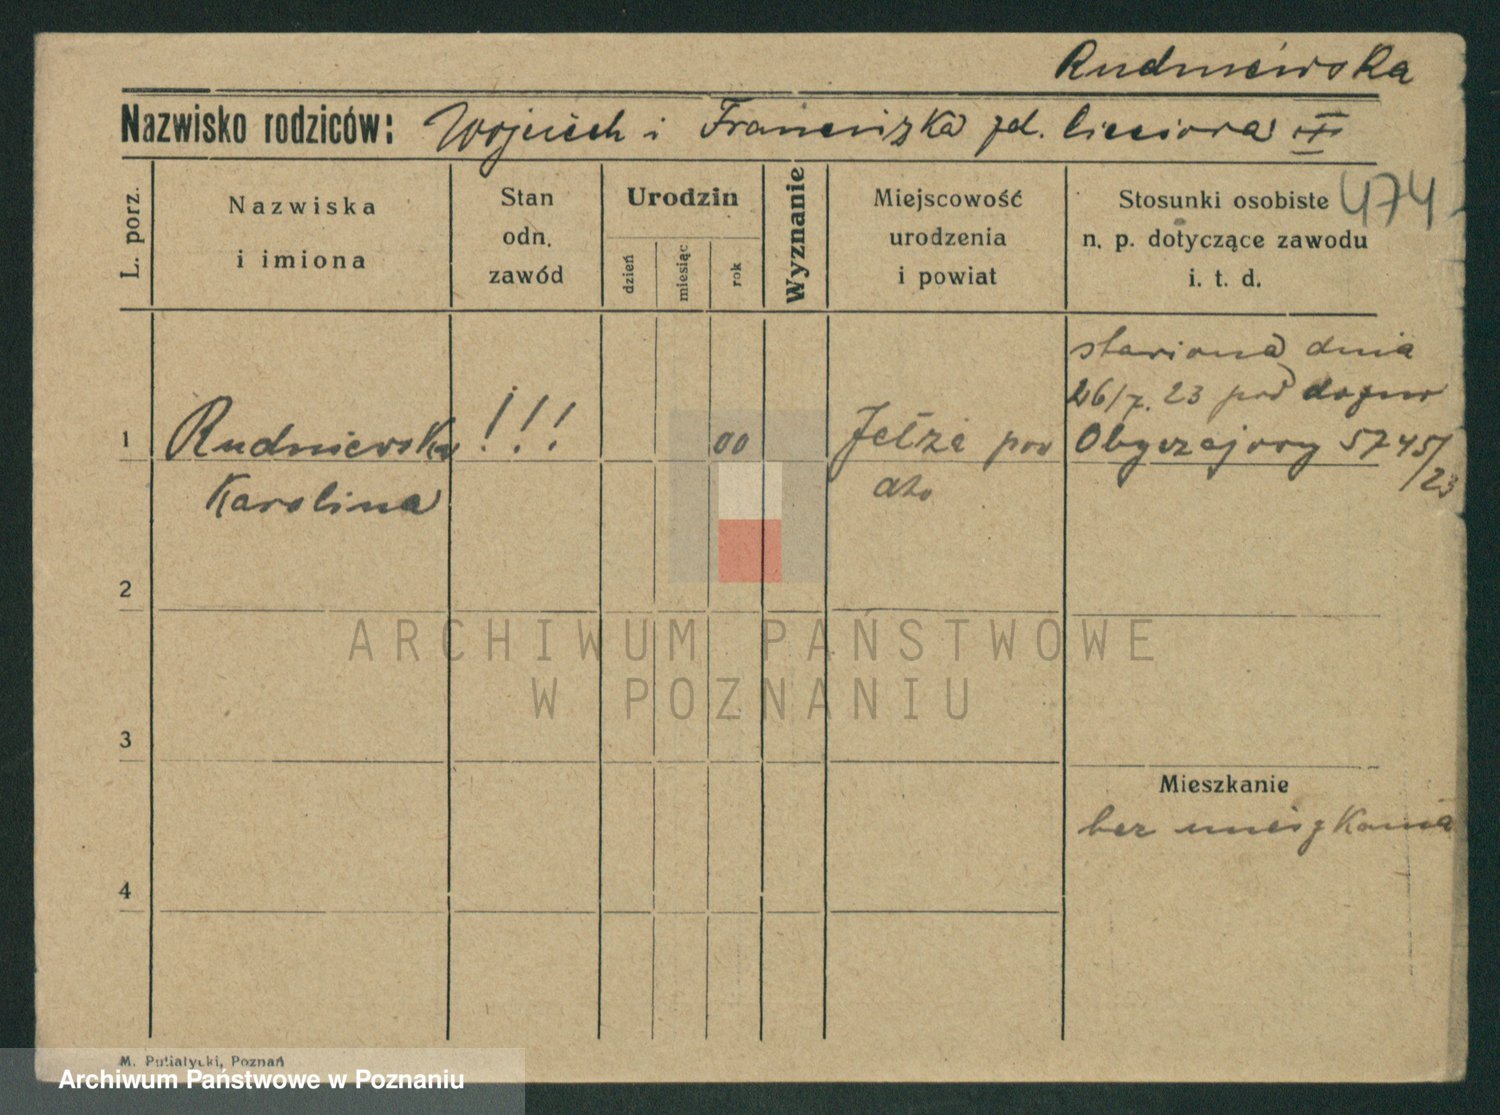 Rudniewska
Nazwisko rodziców: Wojciech i Franciszka zd. Cieciora
474
L. porz.
Nazwiska
i imiona
Stan
odn.
zawód
Urodzin
dzień
miesiąc
rok
Wyznanie
Miejscowość
urodzenia
i powiat
Stosunki osobiste
n. p. dotyczące zawodu
i. t. d.
stawiona dnia
26/7. 23 pod dozur
1
Rudniewska
!!!
00
pow
5745/
23
Karolina
2
ARCHIWUM PAŃSTWOWE
W POZNANIU
3
Mieszkanie
bez mieszkania
4
M. Putiatycki, Poznań
Archiwum Państwowe w Poznaniu